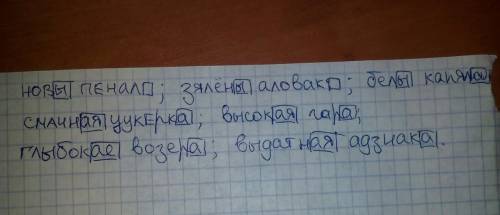 новы пенал; зялёны аловак; белы капялюш
смачная цукерка; высокая гара;
глыбокае возера; выдатная адзнака.